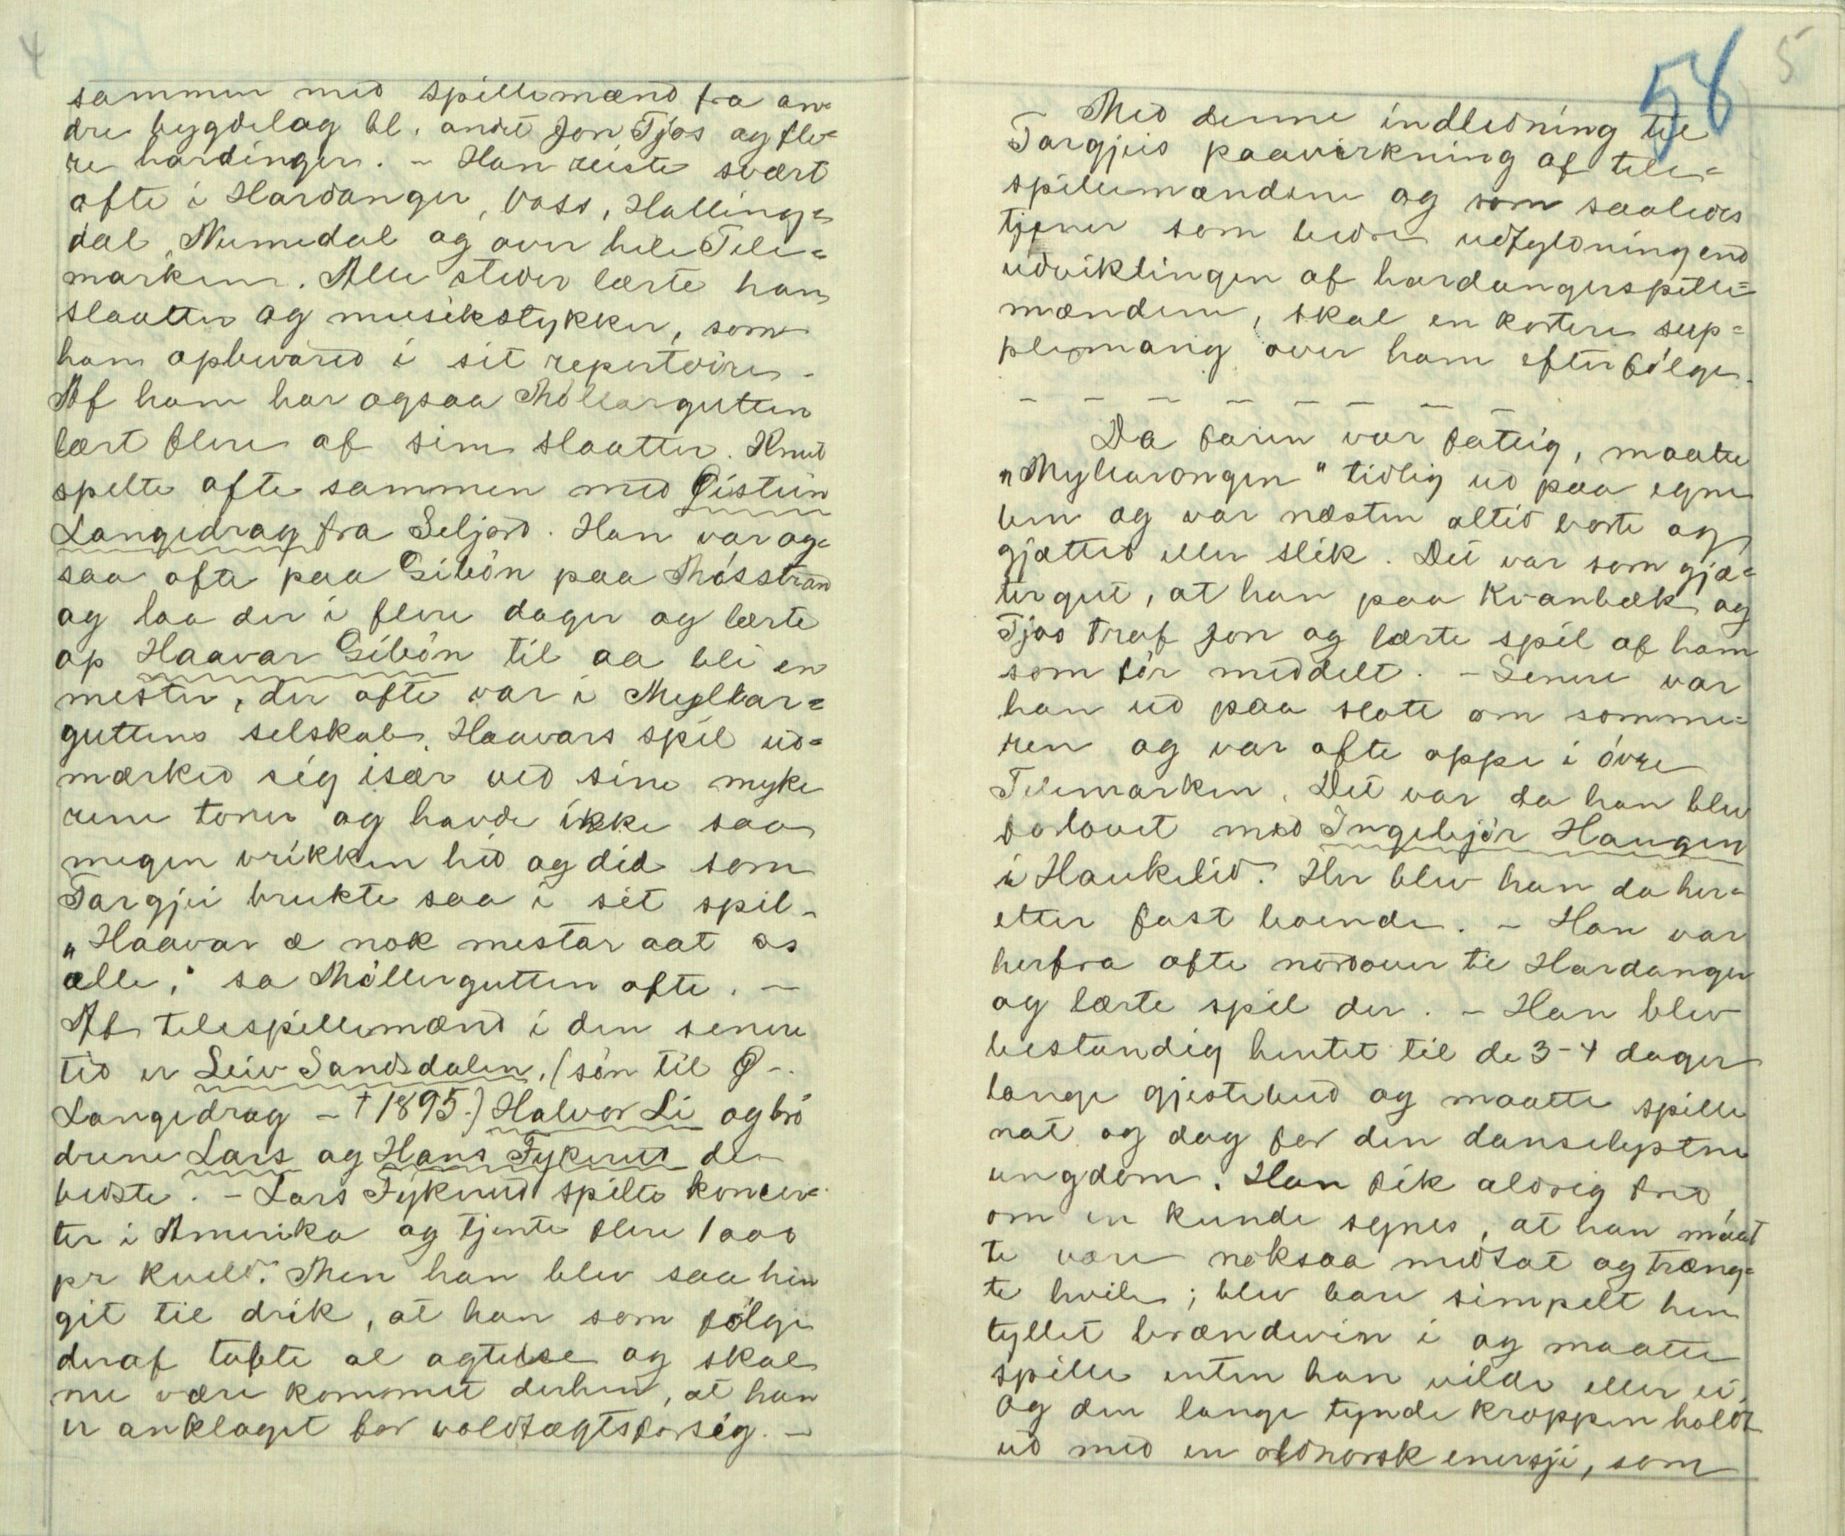 4
sammen med spillemænd fra an-
dre bygdelag bl. andet Jon Tjos og fle-
re hardinger. – Han reiste svært
ofte i Hardanger, Voss, Halling-
dal, Numedal og over hele Tele-
marken. Alle steder lærte han
slaatter og musikstykker, som
han opbevared i sit repertoire.
Af ham har ogsaa Møllargutten
lært flere af sine slaatter. Knut
spelte ofte sammen med Øistein
Langedrag fra Seljord. Han var og-
saa ofte paa Gibøn paa Møsstrand
og laa der i flere dager og lærte
op Haavar Gibøn til aa bli en
mester, der ofte var i Myllar-
guttens selskab. Haavars spil ud-
mærked sig især ved sine myke
rene toner og havde ikke saa
megen vrikken hid og did som
Targjei brukte saa i sit spil –
„Haavar æ nok mestar aat os
alle," sa Møllergutten ofte. –
Af telespillemænd i den senere
tid er Leiv Sandsdalen, (søn til Ø.
Langedrag – † 1895.) Halvor Li og brø
drene Lars og Hans Fykerud de
bedste. – Lars Fykerud spilte koncer-
ter i Amerika og tjente flere 1000
pr kveld. Men han blev saa hen
git til drik, at han som følge
deraf tabte al agtelse og skal
nu være kommet derhen, at han
er anklaget for voldtægtsforsøg. –
58
5
– Med denne indledning til
Targjeis paavirkning af tele-
spillemændene og som saaledes
tjener som bedre udfyldning end
udviklingen af hardangerspille-
mændene, skal en kortere sup-
plemang over ham efterfølge.
– – – – – – – –
Da faren var fattig, maatte
„Myllarongen" tidlig ud paa egne
ben og var næsten altid borte og
gjætted eller slik. Det var som gjæ-
tergut, at han paa Kvanbæk og
Tjos traf Jon og lærte spil af ham
som før meddelt. – Senere var
han ud paa slote om somme-
ren og var ofte oppe i øvre
Telemarken. Det var da han blev
forlovet med Ingebjør Haugen
i Haukelid. Her blev han da her-
etter fast boende. – Han var
herfra ofte nordover til Hardanger
og lærte spil der. – Han blev
bestandig hentet til de 3-4 dager
lange gjestebud og maatte spille
nat og dag for den danselystne
ungdom. Han fik aldrig fred
om en kunde synes, at han maat
te være noksaa medtat og træng-
te hvile; blev bare simpelt hen
tyllet brændevin i og maatte
spille enten han vilde eller ei.
Og den lange tynde kroppen holdt
ud med en oldnorsk energi, som